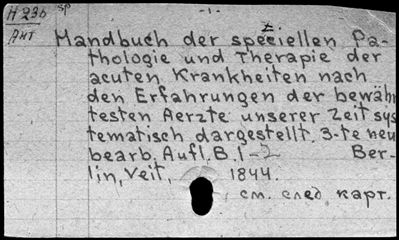 H 23b sp - 1 -
Акт
Handbuch der speziellen Pa-
thologie und Therapie der
acuten Krankheiten nach
den Erfahrungen der bewähr
testen Aerzte unserer Zeit sys
tematisch dargestellt. 3-te neu
bearb. Aufl. B. 1-2 Ber-
lin, Veit, 1844.
см. след. карт.